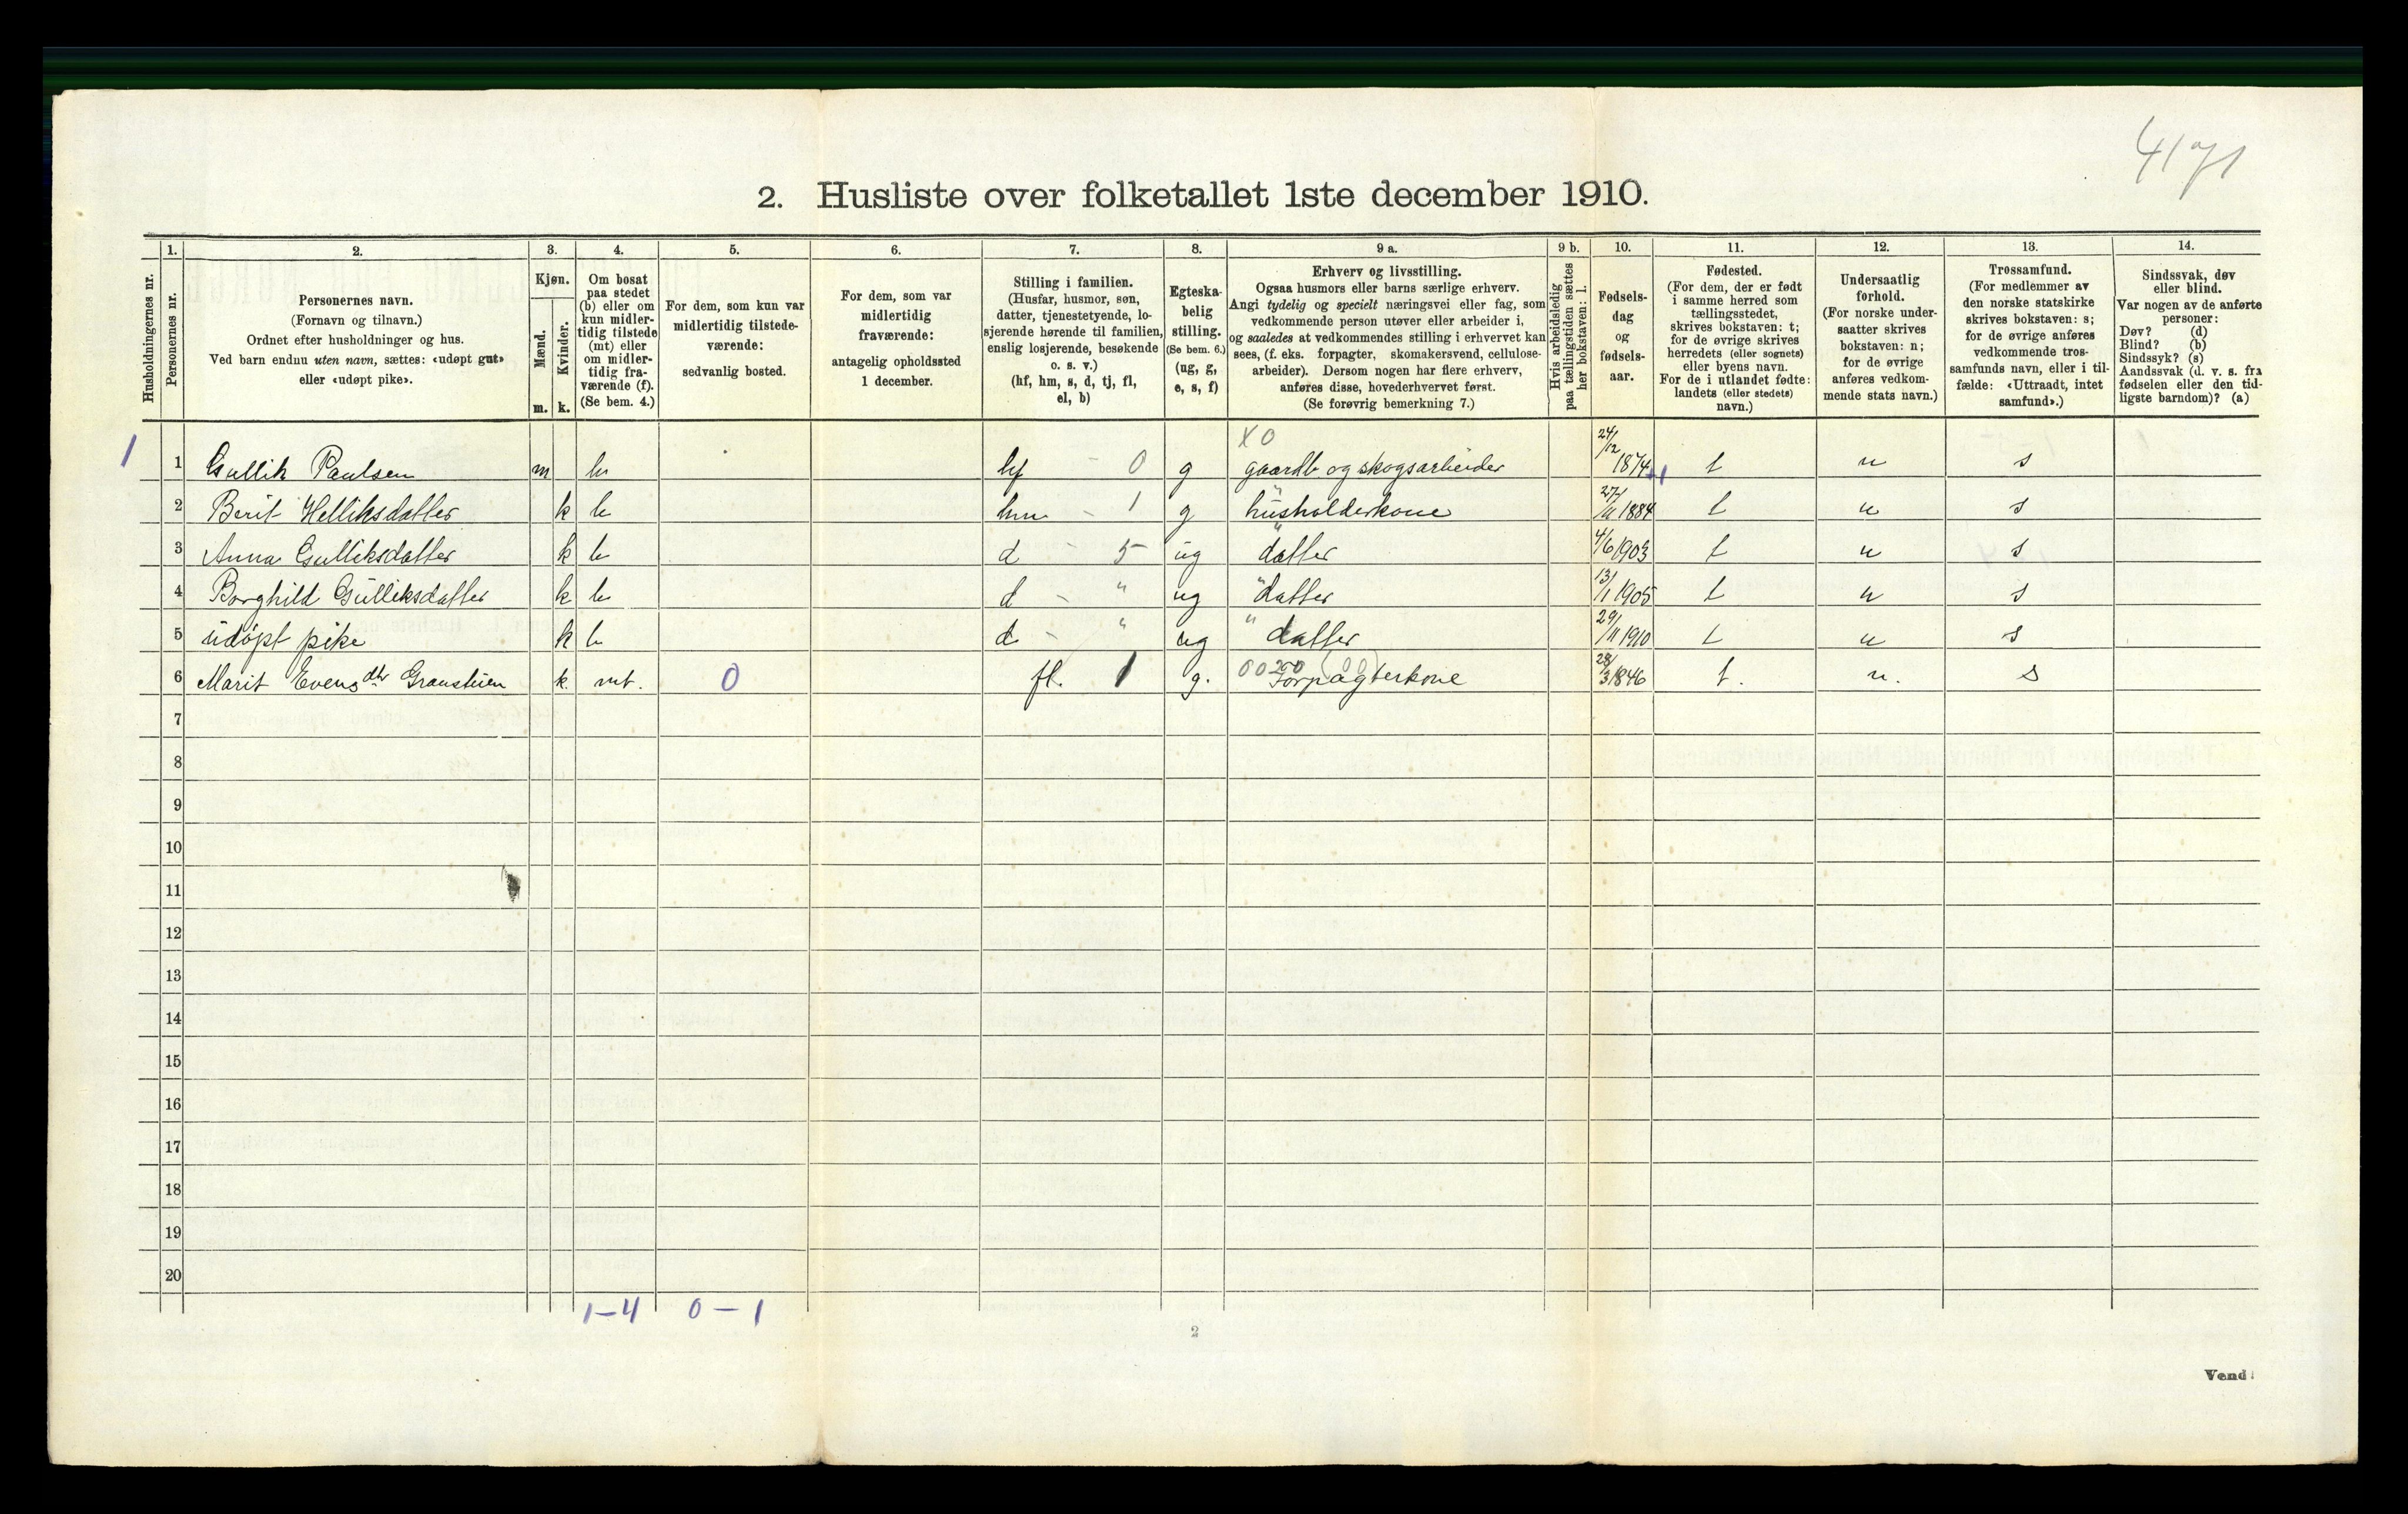 4171
2. Husliste over folketallet 1ste december 1910.
1. 2. 3. 4. 5. 6. 7. 8. 9 a. 9 b. 10. 11. 12. 13. 14.
Husholdningernes nr.
Personernes nr.
Personernes navn.
(Fornavn og tilnavn.)
Ordnet efter husholdninger og hus.
Ved barn endnu uten navn, sættes: «udøpt gut»
eller «udøpt pike».
Kjøn.
Mænd.
Kvinder.
m. k.
Om bosat
paa stedet
(b) eller om
kun midler-
tidig tilstede
(mt) eller
om midler-
tidig fra-
værende (f).
(Se bem. 4.)
For dem, som kun var
midlertidig tilstede-
værende:
sedvanlig bosted.
For dem, som var
midlertidig
fraværende:
antagelig opholdssted
1 december.
Stilling i familien.
(Husfar, husmor, søn,
datter, tjenestetyende, lo-
sjerende hørende til familien,
enslig losjerende, besøkende
o. s. v.)
(hf, hm, s, d, tj, fl,
el, b)
Egteska-
belig
stilling.
(Se bem. 6.)
(ug, g,
e, s, f)
Erhverv og livsstilling.
Ogsaa husmors eller barns særlige erhverv.
Angi tydelig og specielt næringsvei eller fag, som
vedkommende person utøver eller arbeider i,
og saaledes at vedkommendes stilling i erhvervet kan
sees, (f. eks. forpagter, skomakersvend, cellulose-
arbeider). Dersom nogen har flere erhverv,
anføres disse, hovederhvervet først.
(Se forøvrig bemerkning 7.)
Hvis arbeidsledig
paa tællingstiden sættes
her bokstaven: l.
Fødsels-
dag
og
fødsels-
aar.
Fødested.
(For dem, der er født
i samme herred som
tællingsstedet,
skrives bokstaven: t;
for de øvrige skrives
herredets (eller sognets)
eller byens navn.
For de i utlandet fødte:
landets (eller stedets)
navn.)
Undersaatlig
forhold.
(For norske under-
saatter skrives
bokstaven: n;
for de øvrige
anføres vedkom-
mende stats navn.)
Trossamfund.
(For medlemmer av
den norske statskirke
skrives bokstaven: s;
for de øvrige anføres
vedkommende tros-
samfunds navn, eller i til-
fælde: «Uttraadt, intet
samfund».)
Sindssvak, døv
eller blind.
Var nogen av de anførte
personer:
Døv? (d)
Blind? (b)
Sindssyk? (s)
Aandssvak (d. v. s. fra
fødselen eller den tid-
ligste barndom)? (a)
X 0
1 1 Gullik Paulsen m b hf - 0 g gaardb og skogsarbeider 24/12 1874 t n s
2 Berit Helliksdatter k b hm - 1 g husholderkone 27/11 1884 t n s
3 Anna Gulliksdatter k b d - 5 ug datter 4/6 1903 t n s
4 Borghild Gulliksdatter k b d - " ug " datter 13/1 1905 t n s
5 udøpt pike k b d - " ug " datter 29/11 1910 t n s
6 Marit Evensdtr k. mt. 0 fl. 1 g. Forpagterkone 28/3 1846 t. n. s
7
8
9
10
11
12
13
14
15
16
17
18
19
20
1-4 0-1
2
Vend!